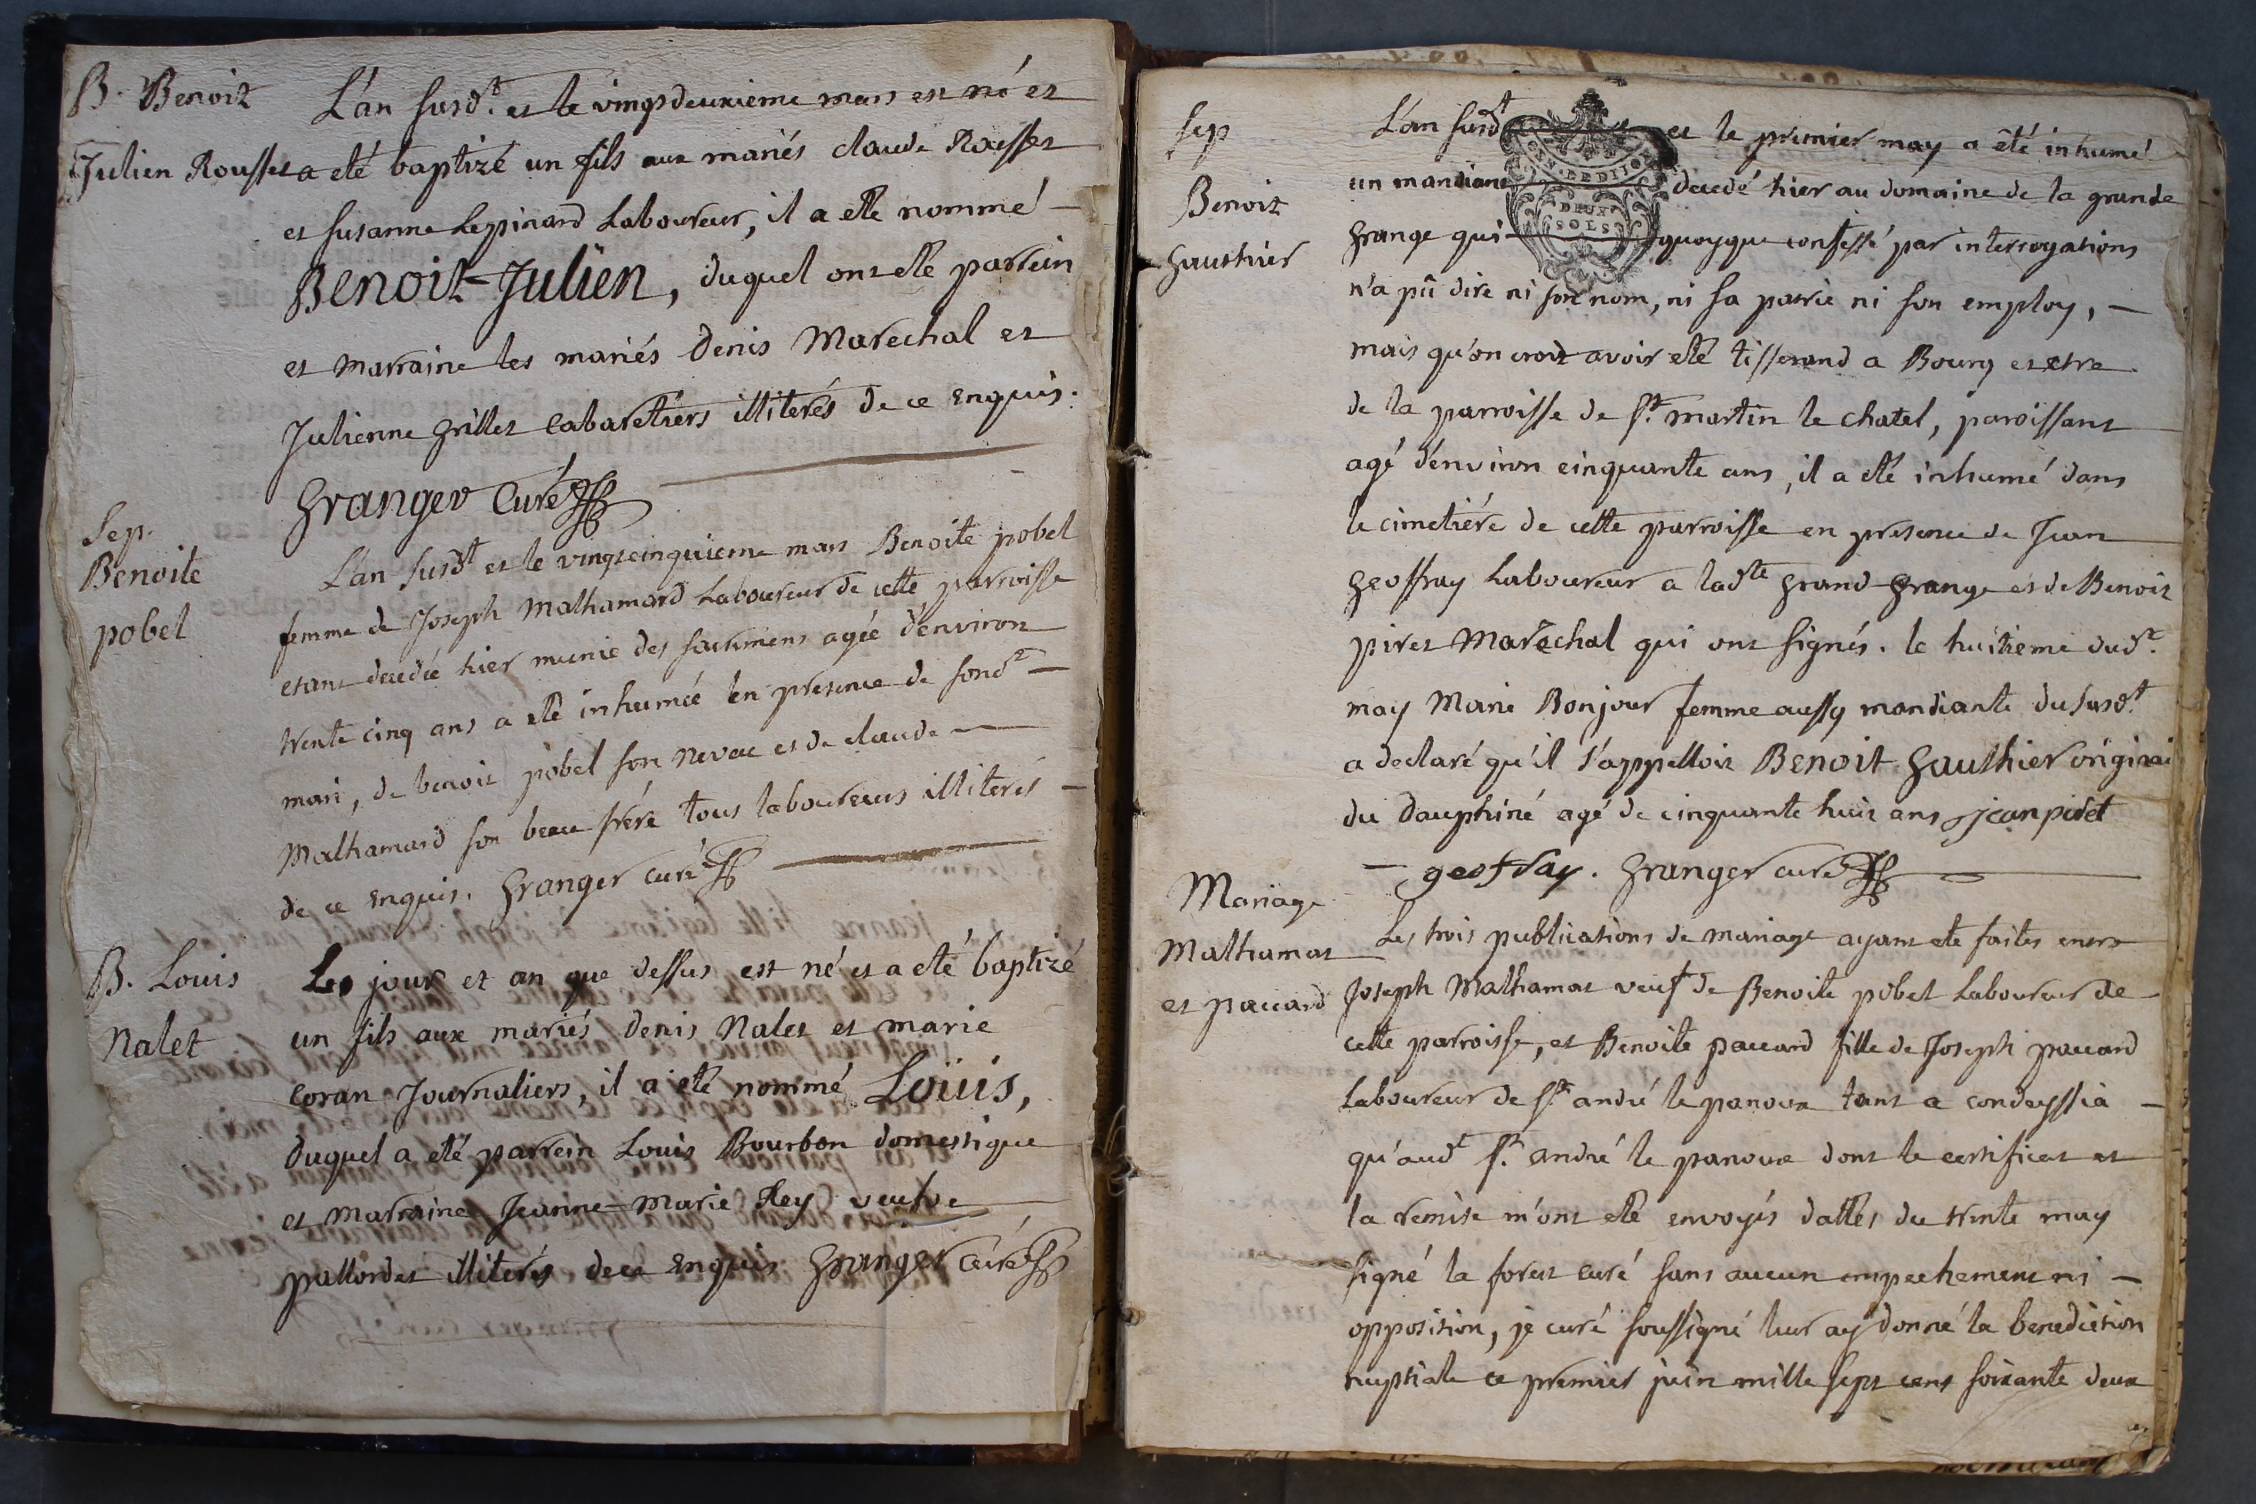 B. Benoit
Julien Rousset
L'an susdt. et le vingtdeuxieme mars est né et
a eté baptizé un fils aux mariés claude Rousset
et susanne Lepinard Laboureur, il a eté nommé —
Benoit-Julien, duquel ont eté parrein
et marraine les mariés denis Marechal et
Julienne grillet cabaretiers illiterés de ce enquis.
granger curé
Sep.
Benoite
pobel
L'an susdt et le vingtcinquieme mars Benoite pobel
femme de Joseph Mathamard Laboureur de cette parroisse
etant decedée hier munie des sacremens agée d'environ
trente cinq ans a eté inhumée en presence de sondt —
mari, de benoit pobel son neveu et de claude —
Mathamard son beau frére tous laboureurs illiterés —
de ce enquis. granger curé
B. Louis
Nalet
Les jour et an que dessus est né et a eté baptizé
un fils aux mariés denis Nalet et marie
coran Journaliers, il a eté nommé Loüis,
duquel a eté parrein Louis Bourbon domestique
et marraine Jeanne-Marie Rey veufve
pallordet illiterés de ce enquis granger curé
Sep
Benoit
gauthier
L'an susdt et le premier may a été inhumé
un mandiant decedé hier au domaine de la grande
grange qui quoyque confessé par interrogations
n'a pû dire ni son nom, ni sa patrie ni son employ, —
mais qu'on croit avoir eté tisserand a Bourg et etre
de la parroisse de st. martin le chatel, paroissant
agé d'environ cinquante ans, il a eté inhumé dans
le cimetiére de cette parroisse en presence de Jean
geoffray Laboureur a ladte grand grange et de Benoit
piret Maréchal qui ont signés. le huitieme dudt.
may Marie Bonjour femme aussy mandiante du susdt.
a declaré qu'il s'appelloit Benoit gauthier originai
du dauphiné agé de cinquante huit ans jean piret
— geofray. granger curé
Mariage
Mathamat
et paccard
Les trois publications de mariage ayant eté faites entre
Joseph Mathamat veuf de Benoite pobel Laboureur de
cette parroisse, et Benoite paccard fille de Joseph paccard
Laboureur de st. andré le panoux tant a condeyssia —
qu'audt st. andré le panoux dont le certificat et
la remise m'ont eté envoyés dattés du trente may
signé la forest curé sans aucun empechement ni —
opposition, je curé soussigné leur ay donné la benediction
nuptiale ce premier juin mille sept cent soixante deux